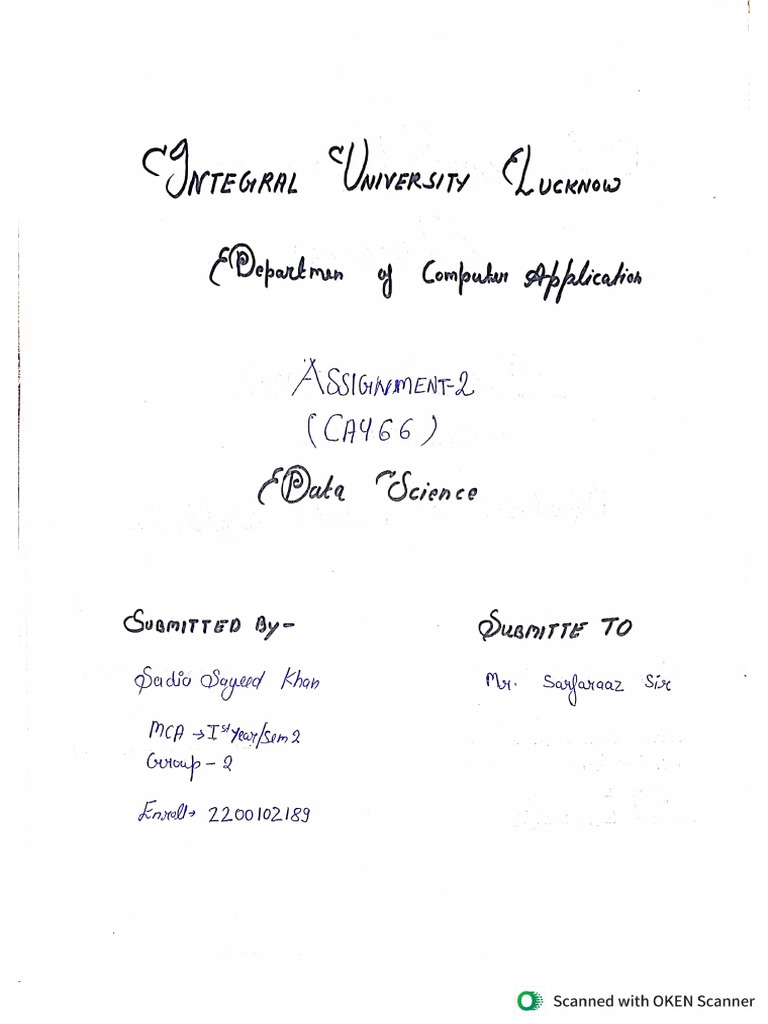 INTEGRAL UNIVERSITY LUCKNOW
Departmen of Computer Application
ASSIGNMENT-2
(CA466)
Data Science
SUBMITTED By-
SUBMITTE TO
Sadia Sayeed Khan
Mr. Sarfaraaz Sir
MCA → Ist year/sem 2
Group - 2
Enroll → 2200102189
Scanned with OKEN Scanner